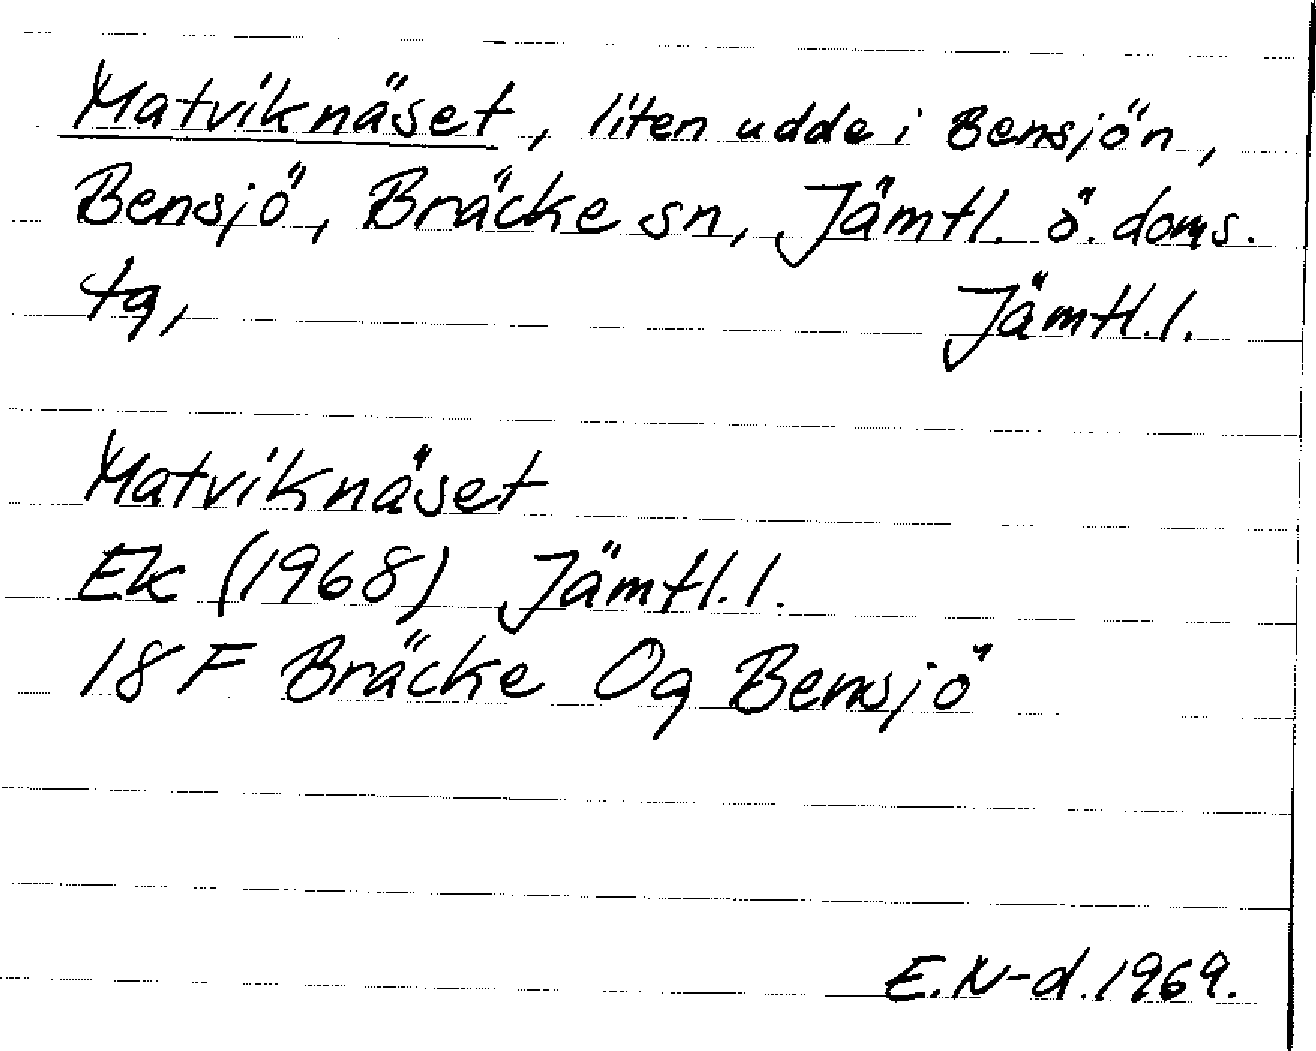 Matviknäset, liten udde i Bensjön,
Bensjö, Bräcke sn, Jämtl. ö. doms.
tg, Jämtl. l.
Matviknäset
Ek (1968) Jämtl. l.
18 F Bräcke Og Bensjö
E. N-d. 1969.